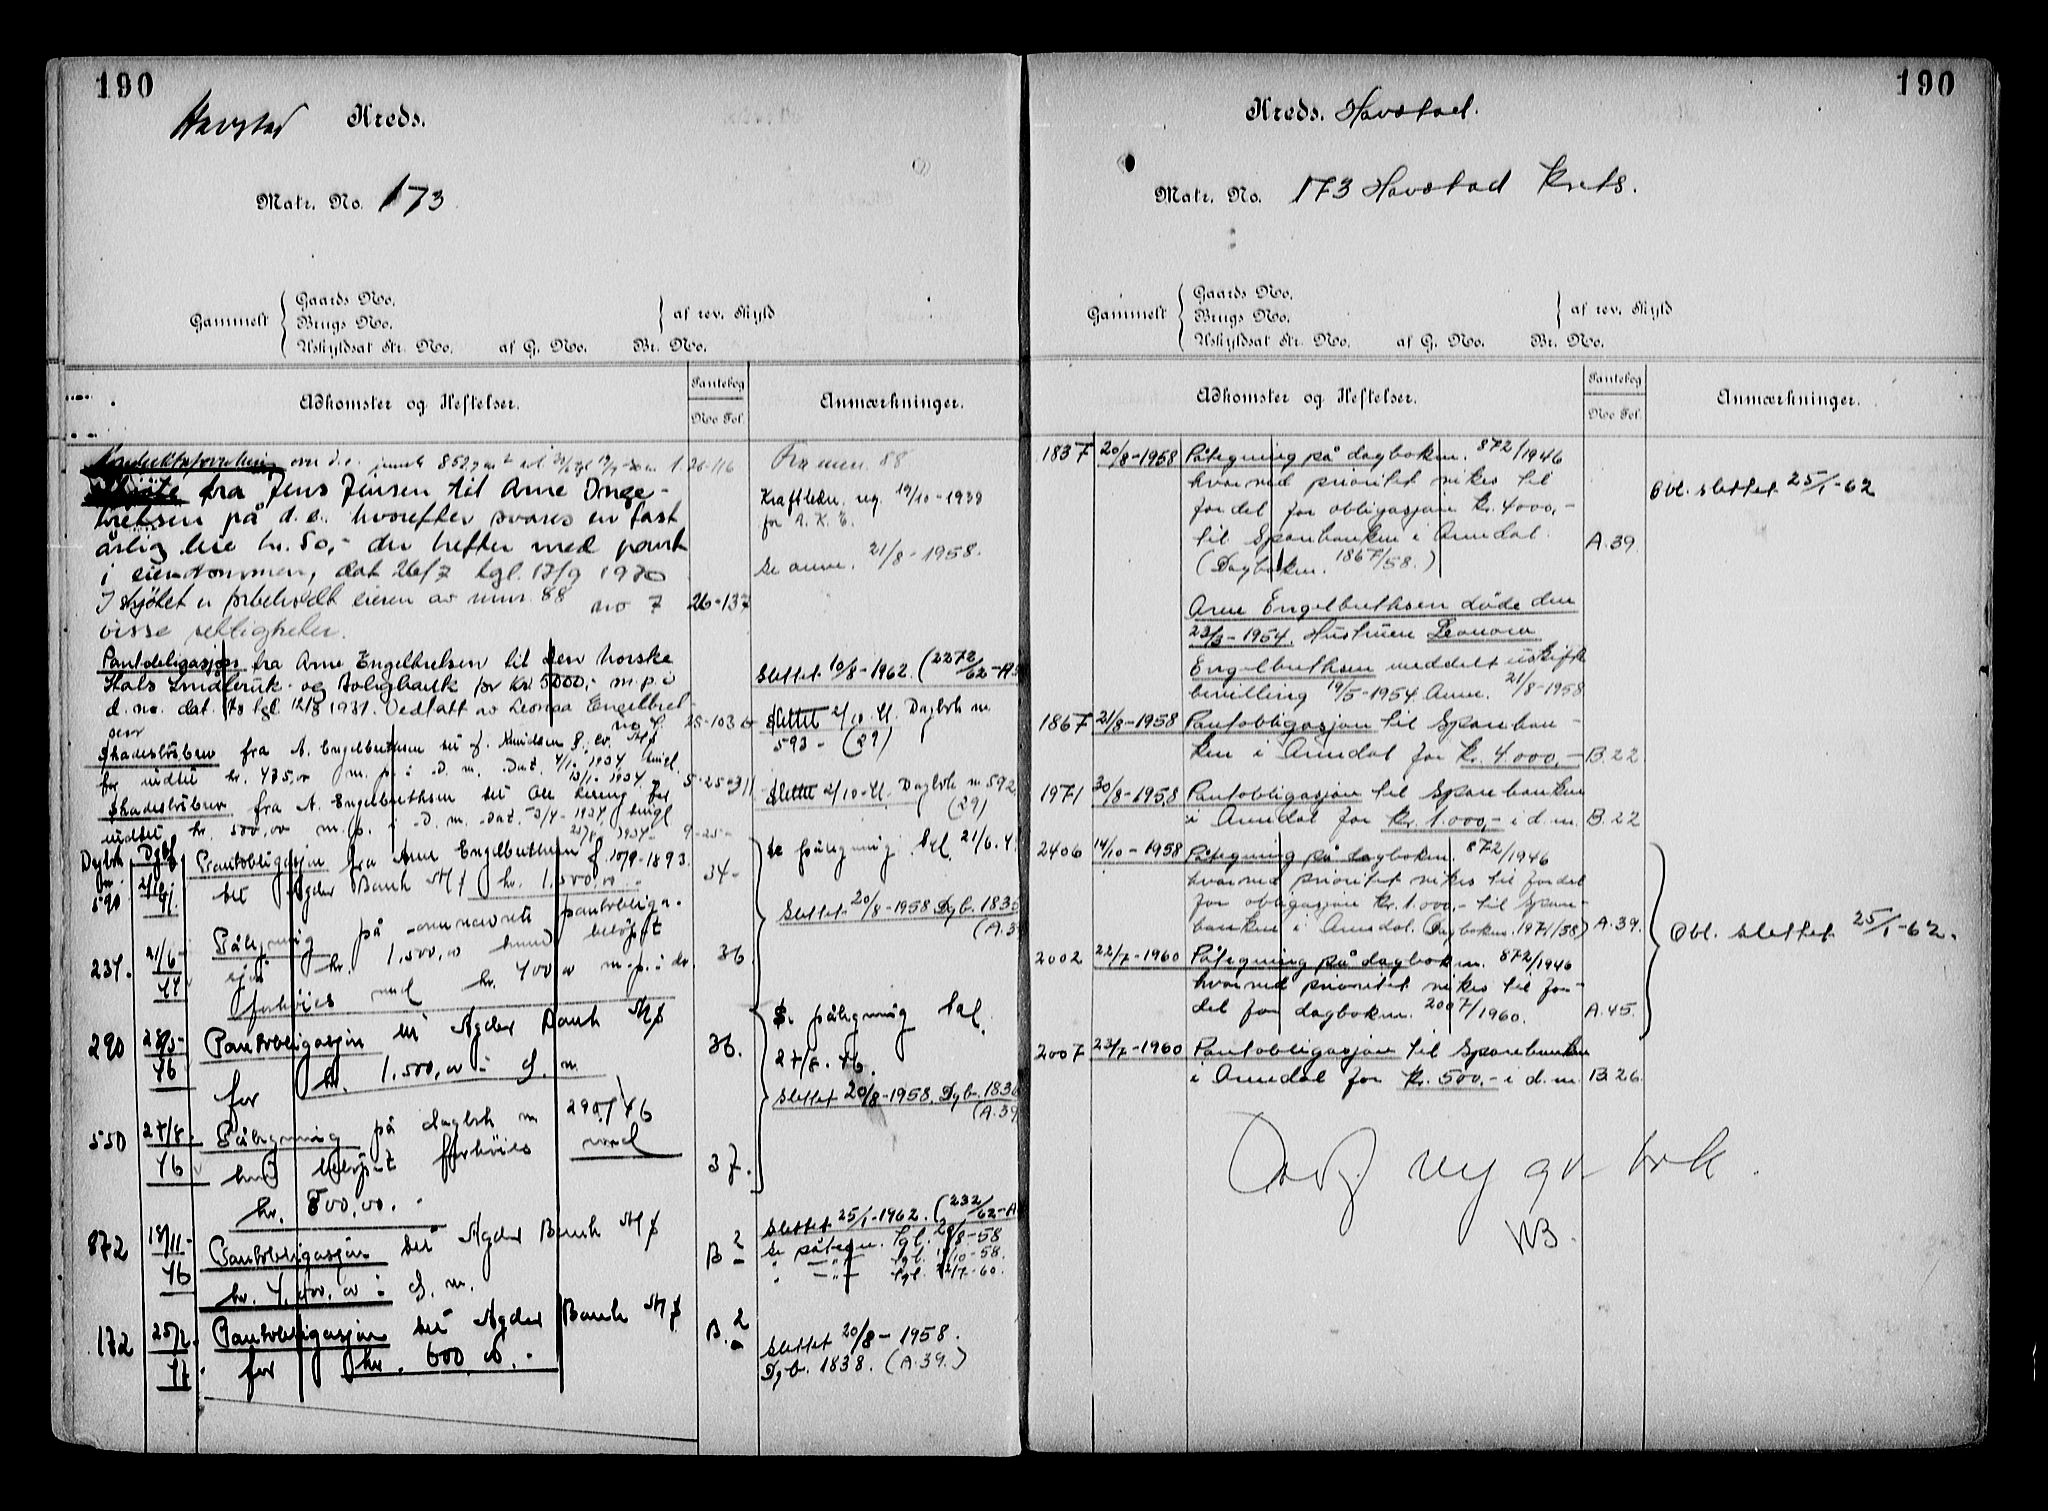 190
Havstad Kreds.
Matr. No. 173
Gammelt
Gaards No.
Brugs No.
af rev. Skyld
Uskyldsat Str. No. af G. No. Br. No.
Adkomster og Heftelser.
Pantebog
No Fol.
Anmærkninger.
over d.e.
26-116
Fra mnr. 88
Skjøte fra Jens Jensen til Arne Inge-
bretsen på d.e. hvorefter svares en fast
årlig leie kr. 50,- der hefter med pant
i eiendommen, dat 26/7 tgl. 17/9 1930
I skjøtet er forbeholdt eieren av mnr. 88
visse rettigheter. no 7 26-137
Kraftledn. reg. 19/10-1939
for A.K.E.
Se anm. 21/8-1958.
Pantobligasjon fra Arne Engelbretsen til Den norske
Stats Småbruk- og Boligbank for kr 5000,- m.p. i
d. no. dat. tgl. 12/8 1931. Vedtatt av Leonora Engelbret-
sen
Slettet 10/8-1962. (2272/62-A
Skadesløsbrev fra A. Engelbrethsen til J. Knudsen
for indtil kr. 475,00 m.p. i D.m. Dat. 1934
Slettet 2/10-41. Dagbok nr.
593 - (29)
Skadesløsbrev fra A. Engelbrethsen til Ole
indtil kr. 500,00 m.p. i D.m. Dat. 3/4-1934
Slettet 2/10-41. Dagbok nr 592
(29)
Dagbok nr.
590 2/10 41. Pantobligasjon fra Arne Engelbrethsen f. 10/9-1893.
til Agder Bank A/S kr. 1,500,00. 34-
Se påtegning tgl. 21/6.4
Slettet 20/8-1958 Dgb. 1835
(A.39
237. 21/6-44 Påtegning på omnevnte pantobliga-
sjon kr. 1,500,00 hvis beløp
forhøies med kr. 400,00 m.p. i do. 36.
290 28/5-46 Pantobligasjon til Agder Bank A/S
for kr. 1,500,00 i d. m. 36.
Se påtegning tgl.
27/8. 46.
Slettet 20/8-1958. Dgb. 1836
(A.39
550 27/8-46 Påtegning på dagbok nr 290/46
hvis beløp forhøies med
kr. 800,00. 37.
872 18/11-46 Pantobligasjon til Agder Bank A/S
kr. 4,000,00 i d. m. B 2
Slettet 25/1-1962. (232/62-A
Se påtegn. tgl. 20/8-58
" -"- tgl. 14/10-58.
" -"- tgl. 22/7-60.
172 25/2-47 Pantobligasjon til Agder Bank A/S
for kr. 600,00. B. 2
Slettet 20/8-1958.
Dgb. 1838. (A.39.)
190
Kreds. Havstad.
Matr. No. 173 Havstad Krets.
Gammelt
Gaards No.
Brugs No.
af rev. Skyld
Uskyldsat Str. No. af G. No. Br. No.
Adkomster og Heftelser.
Pantebog
No Fol.
Anmærkninger.
1837 20/8-1958 Påtegning på dagboknr. 872/1946
hvorved prioritet vikes til
fordel for obligasjon kr. 4000,-
til Sparebanken i Arendal.
(Dagboknr. 1867/58.) A.39.
Obl. slettet 25/1-62
Arne Engelbrethsen døde den
23/3-1954. Hustruen Leonora
Engelbrethsen meddelt uskifte-
bevilling 19/5-1954. Anm. 21/8-1958
1867 21/8-1958 Pantobligasjon til Spareban-
ken i Arendal for kr. 4.000,- B.22
1971 30/8-1958 Pantobligasjon til Sparebanken
i Arendal for kr. 1.000,- i d.m. B.22
2406 14/10-1958 Påtegning på dagboknr. 872/1946
hvorved prioritet vikes til fordel
for obligasjon kr. 1.000,- til Spare-
banken i Arendal. (Dagboknr. 1971/58) A.39.
Obl. slettet 25/1-62.
2002 22/7-1960 Påtegning på dagboknr. 872/1946
hvorved prioritet vikes til for-
del for dagboknr. 2007/1960. A.45.
2007 23/7-1960 Pantobligasjon til Sparebanken
i Arendal for kr. 500,- i d.m. B.26.
Overf. ny gr bok.
NB.